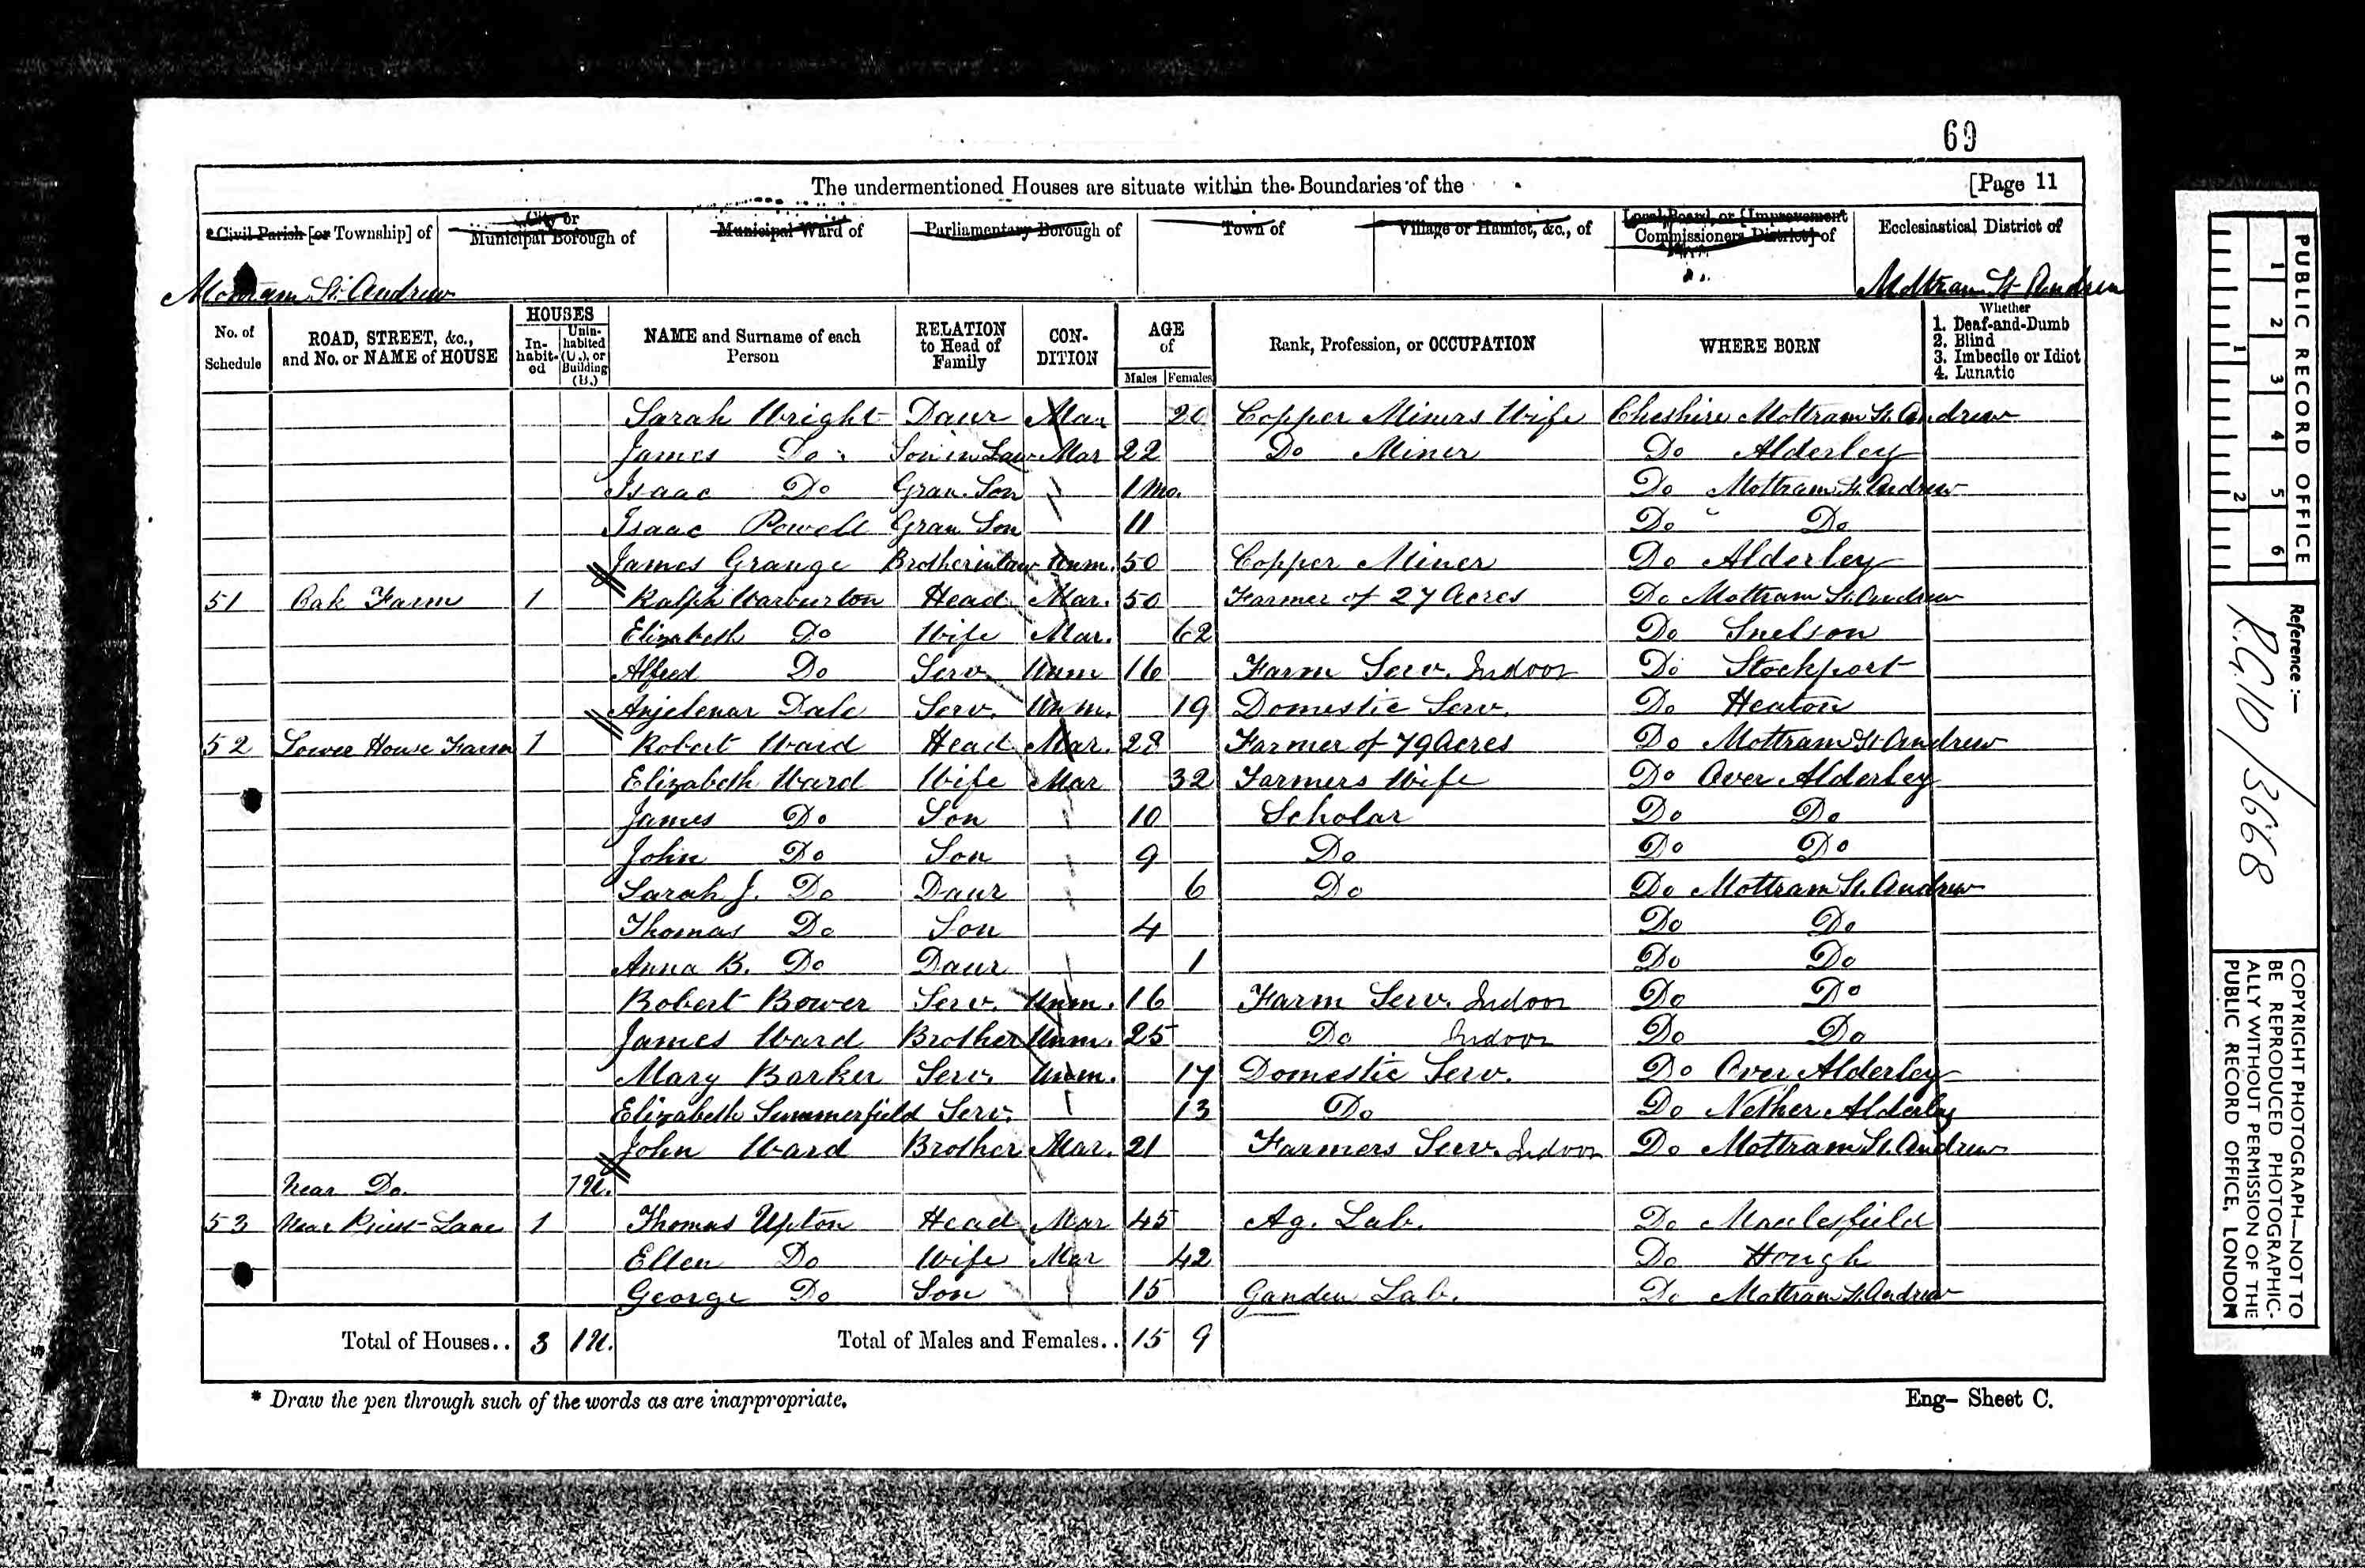 69
The undermentioned Houses are situate within the Boundaries of the [Page 11
* Civil Parish [or Township] of City or Municipal Borough of Municipal Ward of Parliamentary Borough of Town of Village or Hamlet, &c., of Local Board, or [Improvement Commissioners District] of Ecclesiastical District of
Mottram St. Andrew Mottram St Andrew
No. of Schedule ROAD, STREET, &c., and No. or NAME of HOUSE HOUSES In-habit-ed Unin-habited (U.), or Building (B.) NAME and Surname of each Person RELATION to Head of Family CON-DITION AGE of Males Females Rank, Profession, or OCCUPATION WHERE BORN Whether 1. Deaf-and-Dumb 2. Blind 3. Imbecile or Idiot 4. Lunatic
Sarah Wright Daur Mar 20 Copper Miners Wife Cheshire Mottram St. Andrew
James Do. Son in Law Mar 22 Do Miner Do Alderley
Isaac Do Gran. Son 1 mo. Do Mottram St. Andrew
Isaac Powell Gran Son 11 Do Do
James Grange Brother in law Unm. 50 Copper Miner Do Alderley
51 Oak Farm 1 Ralph Warburton Head Mar. 50 Farmer of 27 Acres Do Mottram St. Andrew
Elizabeth Do Wife Mar. 62 Do Snelson
Alfred Do Serv. Unm 16 Farm Serv. Indoor Do Stockport
Anjelenar Dale Serv. Unm. 19 Domestic Serv. Do Heaton
52 Lower House Farm 1 Robert Ward Head Mar. 29 Farmer of 79 Acres Do Mottram St Andrew
Elizabeth Ward Wife Mar 32 Farmers Wife Do Over Alderley
James Do Son 10 Scholar Do Do
John Do Son 9 Do Do Do
Sarah J. Do Daur 6 Do Do Mottram St. Andrew
Thomas Do Son 4 Do Do
Anna B. Do Daur 1 Do Do
Robert Bower Serv. Unm. 16 Farm Serv. Indoor Do Do
James Ward Brother Unm. 25 Do Indoor Do Do
Mary Barker Serv. Unm. 17 Domestic Serv. Do Over Alderley
Elizabeth Summerfield Serv. 13 Do Do Nether Alderley
John Ward Brother Mar. 21 Farmers Serv. Indoor Do Mottram St. Andrew
Near Do. 1 U.
53 Near Priest Lane 1 Thomas Upton Head Mar 45 Ag. Lab. Do Macclesfield
Ellen Do Wife Mar 42 Do Hough
George Do Son 15 Garden Lab. Do Mottram St. Andrew
Total of Houses.. 3 1 U. Total of Males and Females.. 15 9
* Draw the pen through such of the words as are inappropriate.
Eng- Sheet C.
PUBLIC RECORD OFFICE
1 2 3 4 5 6
1 2
Reference :-
R.G.10/3668
COPYRIGHT PHOTOGRAPH—NOT TO
BE REPRODUCED PHOTOGRAPHIC-
ALLY WITHOUT PERMISSION OF THE
PUBLIC RECORD OFFICE, LONDON